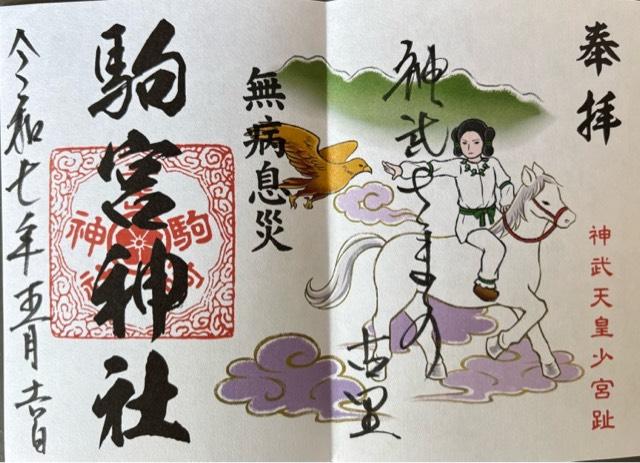 奉拝
神武天皇少宮趾
神武さまの
古里
無病息災
駒宮神社
令和七年五月十六日